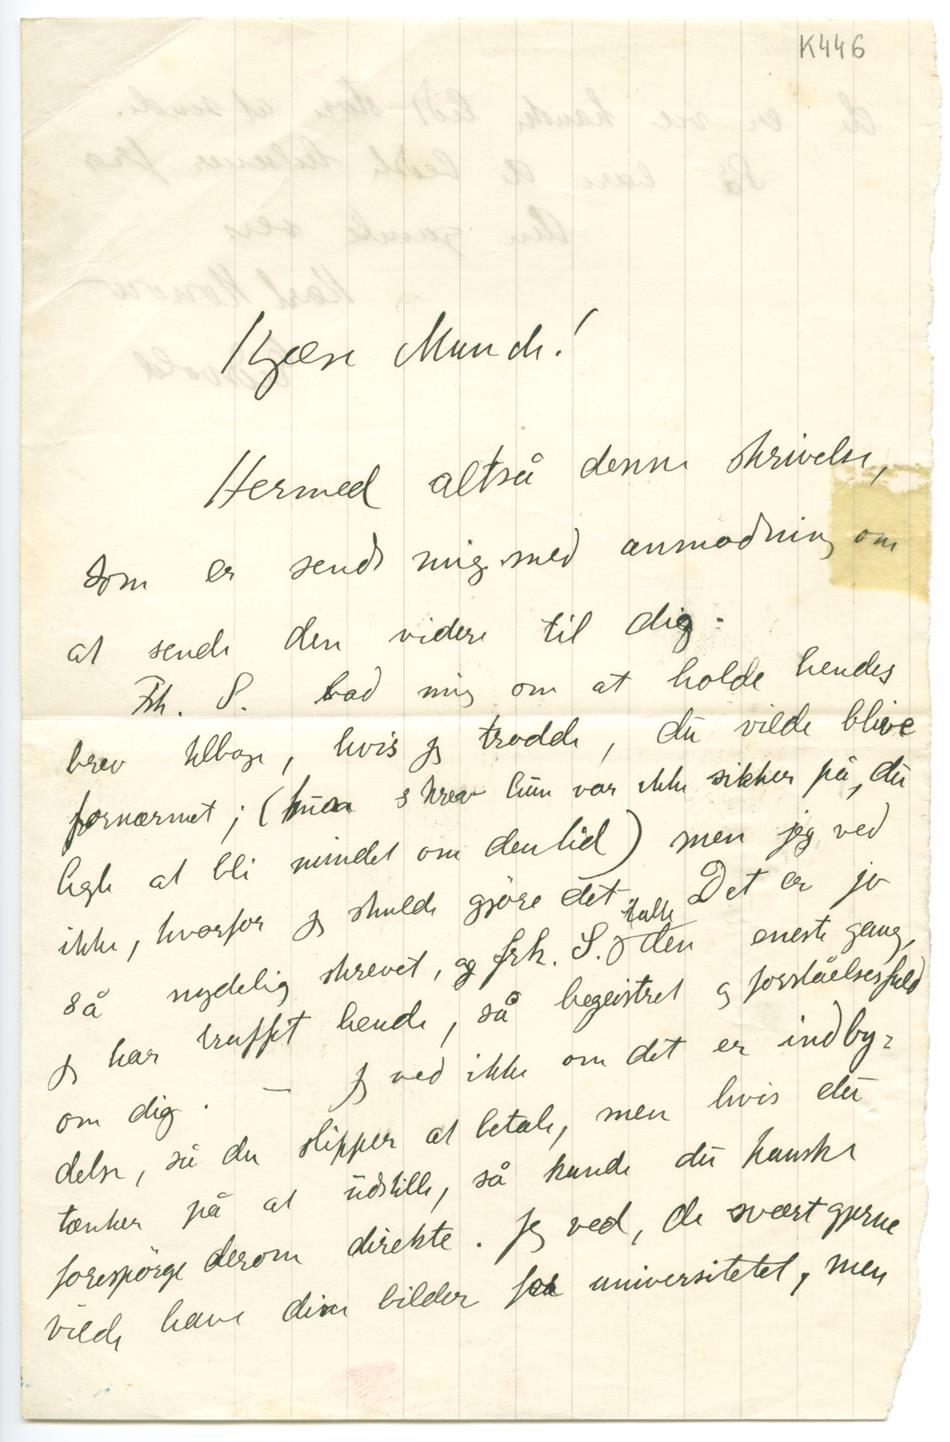 K446
Kjære Munch!
Hermed altså denne skrivelse,
som er sendt mig med anmodning om
at sende den videre til dig.
Frk. S. bad mig om at holde hendes
brev tilbage, hvis jeg trodde, du vilde blive
fornærmet; (hun skrev hun var ikke sikker på, du
ligte at bli mindet om den tid) men jeg ved
ikke, hvorfor jeg skulde gjøre det. Det er jo
så nydelig skrevet, og frk. S. talte den eneste gang,
jeg har truffet hende, så begeistret og forståelsesfuld
om dig. — Jeg ved ikke om det er indby-
delse, så du slipper at betale, men hvis du
tænker på at udstille, så kunde du kanske
forespørge derom direkte. Jeg ved, de svært gjerne
vilde have dine bilder fra universitetet, men